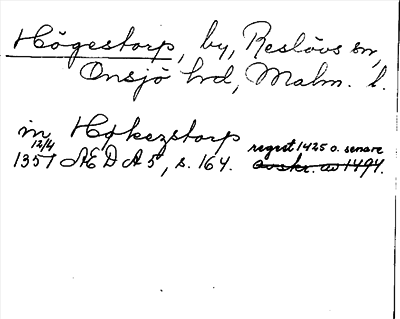 Högestorp, by, Reslövs sn,
Onsjö hrd, Malm. l.
in Høkezstorp
12/4 regest 1425 o. senare
1357 ÆDA5, s. 164. avskr. av 1494.